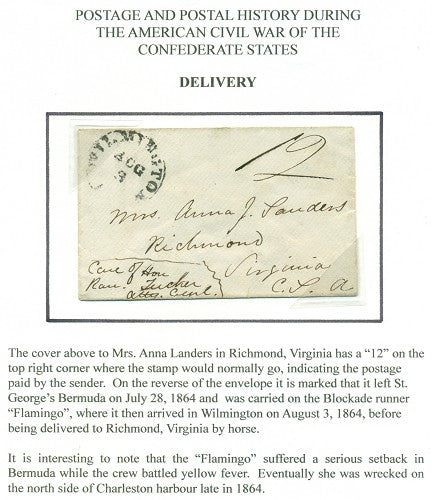 POSTAGE AND POSTAL HISTORY DURING
THE AMERICAN CIVIL WAR OF THE
CONFEDERATE STATES
DELIVERY
WILMINGTON
AUG
3
12
Mrs. Anna J. Landers
Richmond
Virginia
C. S. A
Care of Hon
Ran. Tucker
Atty. Genl.
The cover above to Mrs. Anna Landers in Richmond, Virginia has a “12” on the
top right corner where the stamp would normally go, indicating the postage
paid by the sender.  On the reverse of the envelope it is marked that it left St.
George’s Bermuda on July 28, 1864 and  was carried on the Blockade runner
“Flamingo”, where it then arrived in Wilmington on August 3, 1864, before
being delivered to Richmond, Virginia by horse.
It is interesting to note that the “Flamingo” suffered a serious setback in
Bermuda while the crew battled yellow fever.  Eventually she was wrecked on
the north side of Charleston harbour late in 1864.